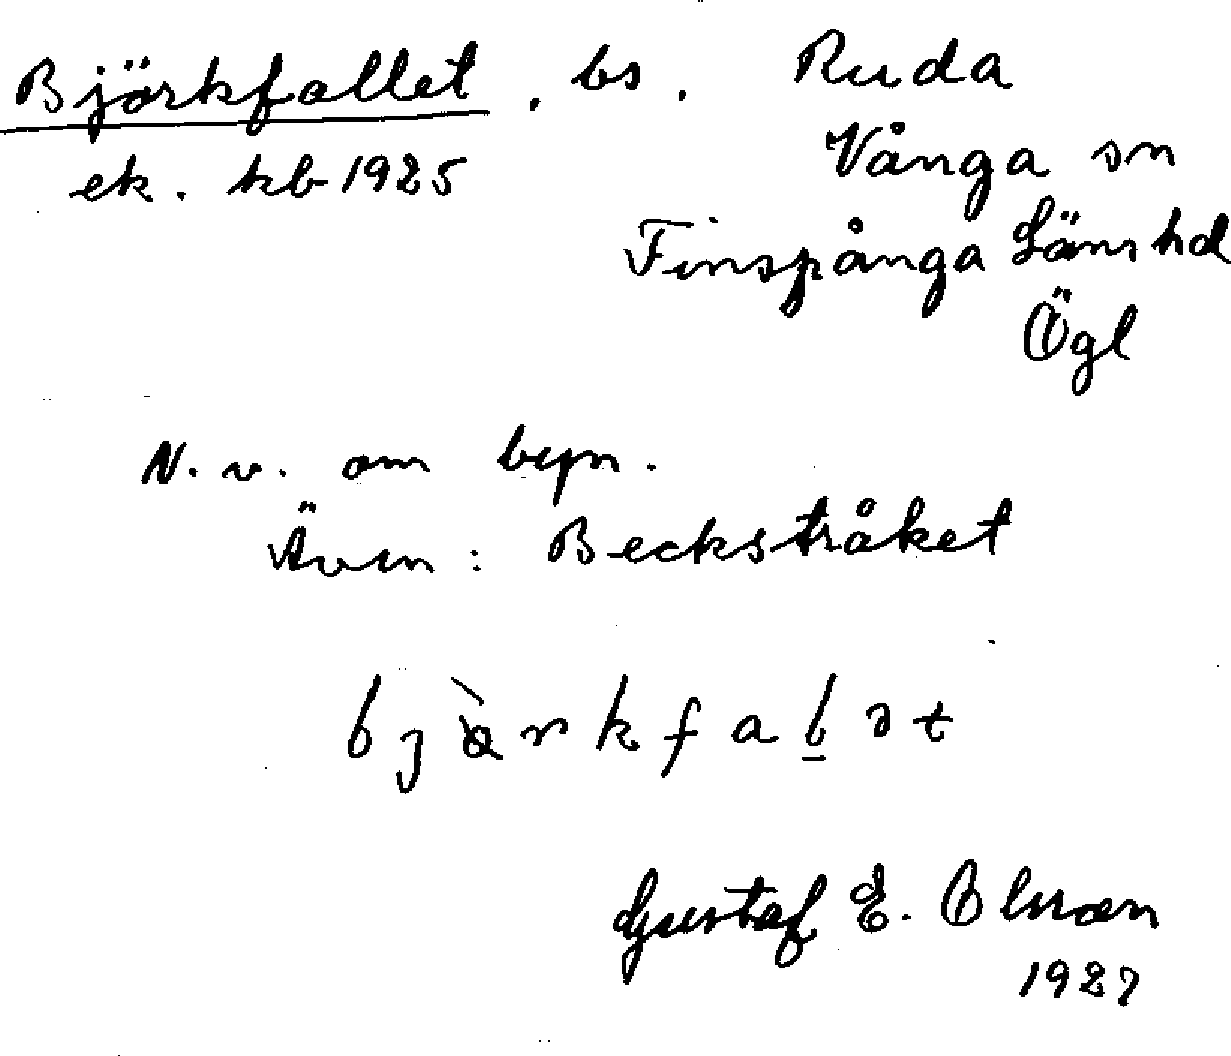 Björkfallet, bs. Ruda
ek. kb 1925 Vånga sn
Finspånga Läns hd
Ögl
N. v. om byn.
Även: Beckstråket
Gustaf E. Olsson
1927